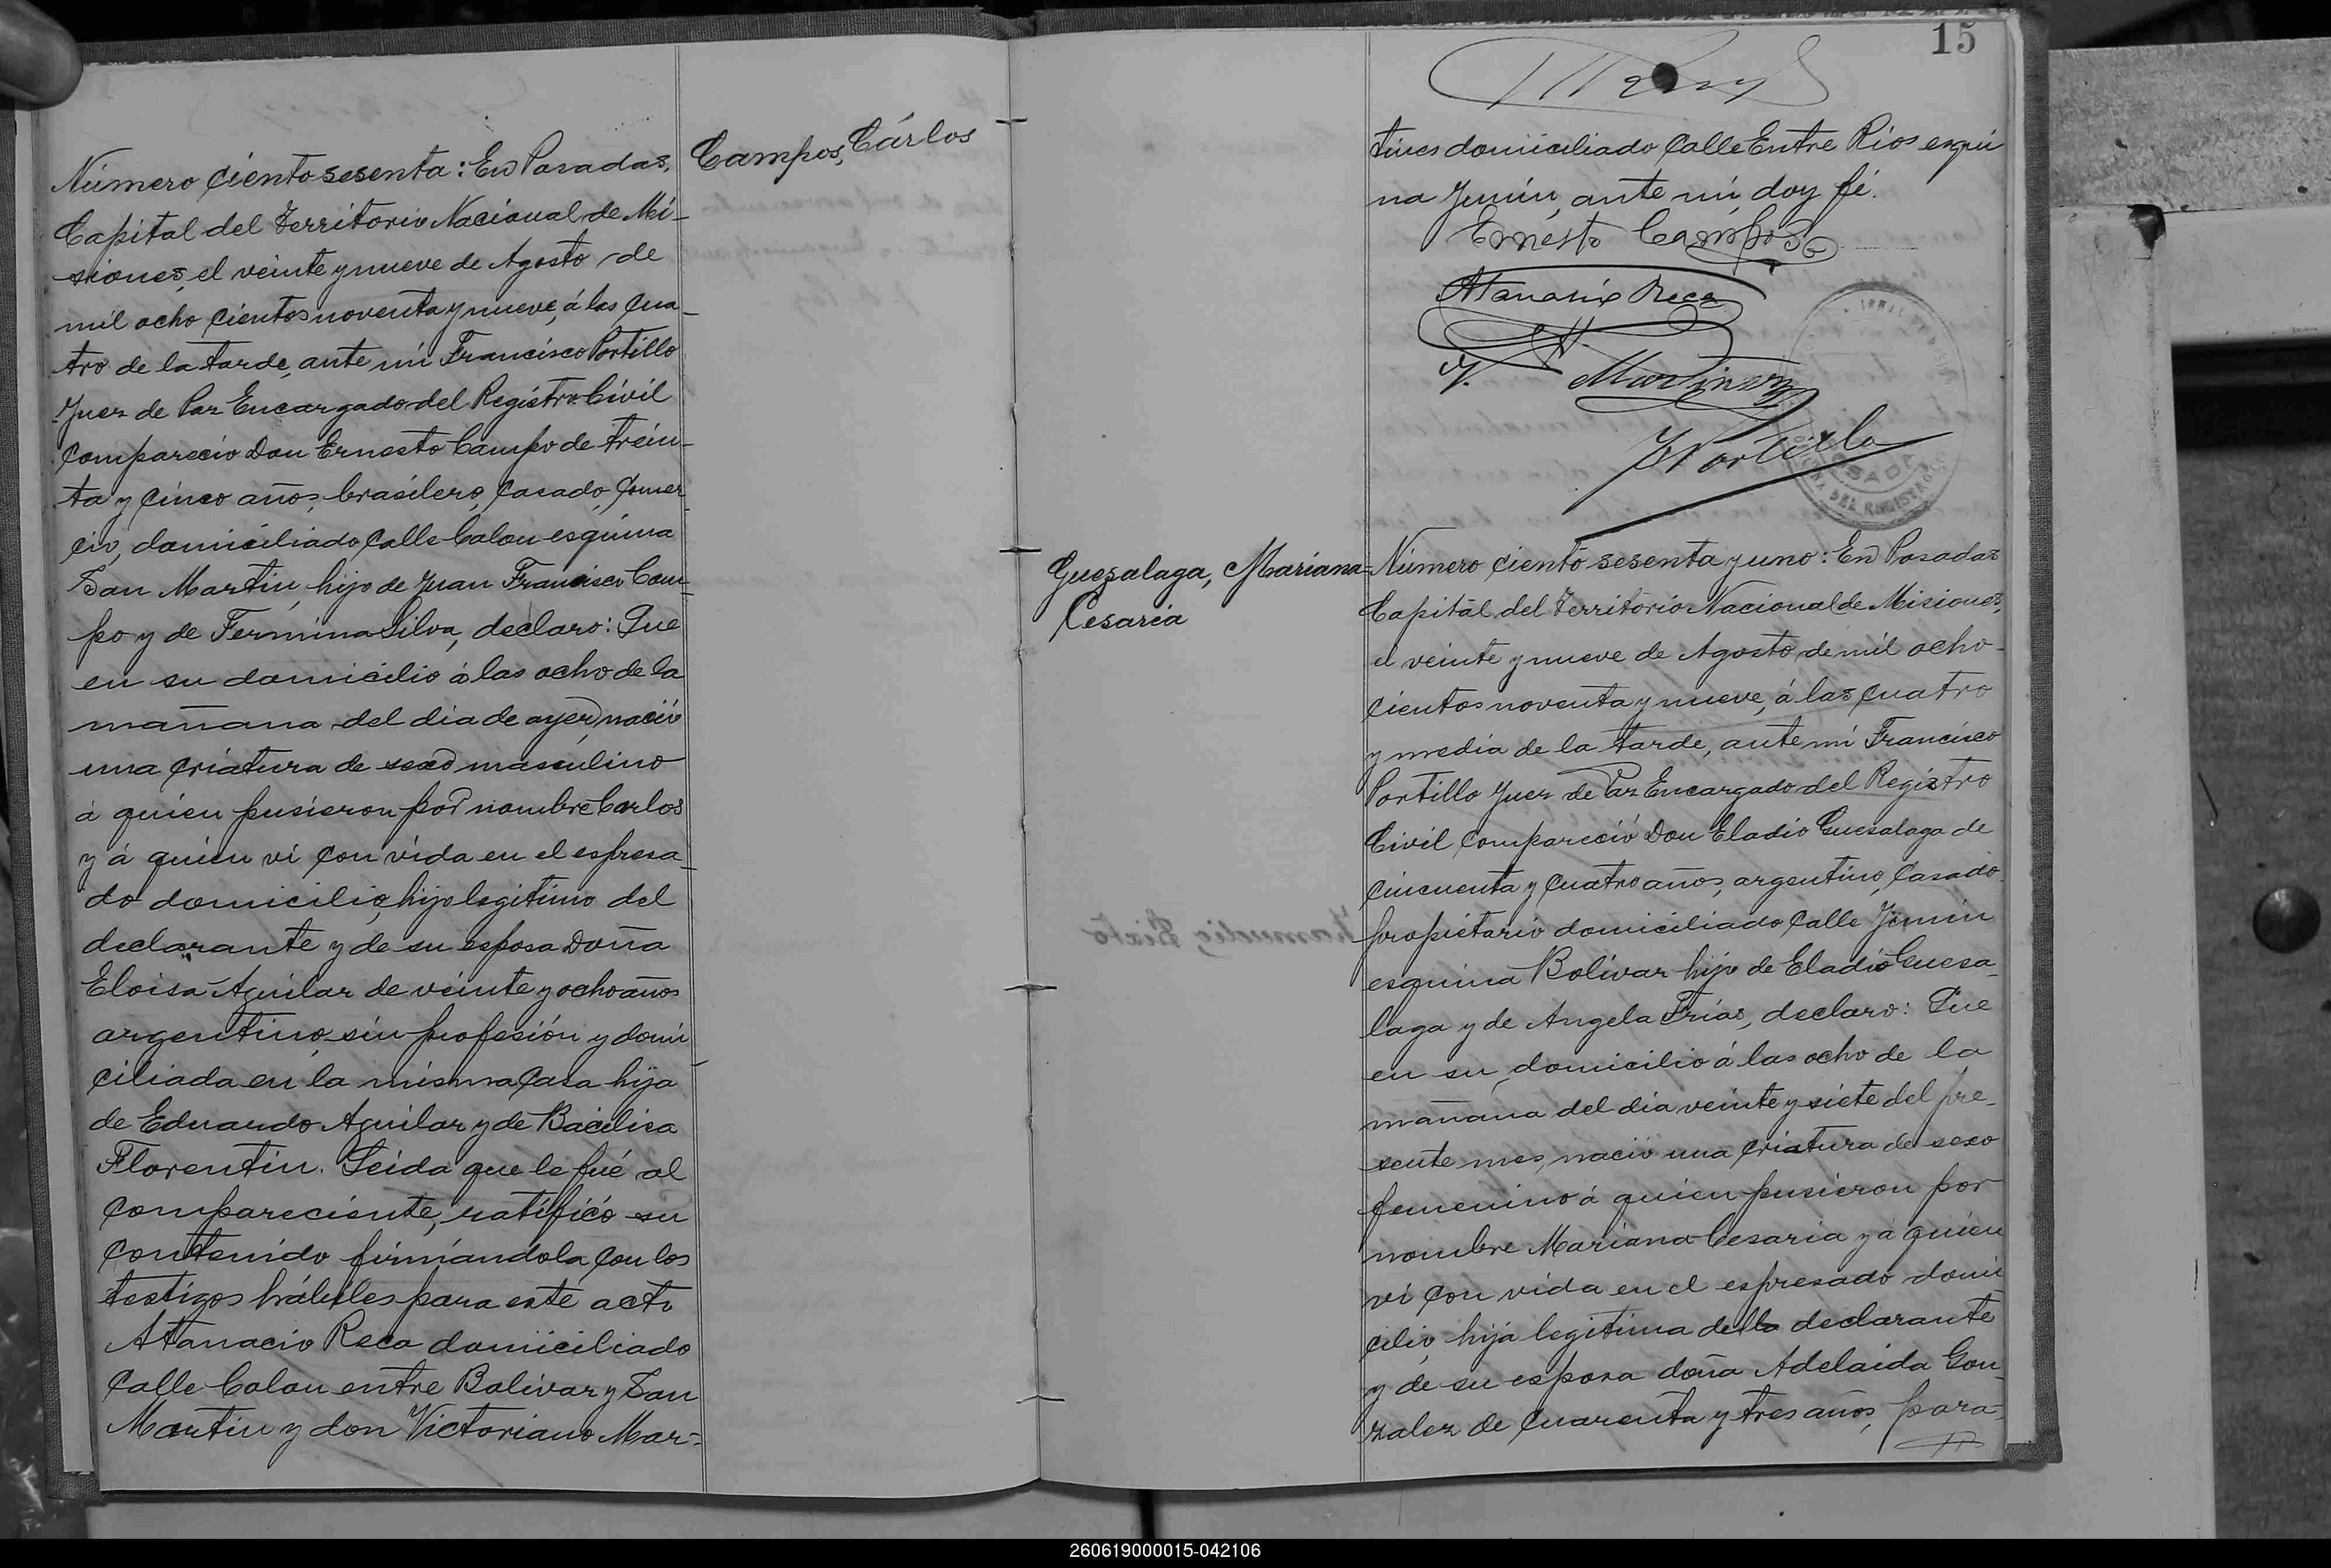 Campos, Cárlos
Número ciento sesenta: En Posadas,
Capital del Territorio Nacional de Mi-
siones, el veinte y nueve de Agosto de
mil ocho cientos noventa y nueve, á las cua-
tro de la tarde, ante mi Francisco Portillo
Juez de Paz Encargado del Registro Civil
compareció Don Ernesto Campo de trein-
ta y cinco años, brasilero, casado, comer-
cio, domiciliado calle Colon esquina
San Martin, hijo de Juan Francisco Cam-
po y de Fermina Silva, declaro: Que
en su domicilio á las ocho de la
mañana del dia de ayer, nació
una criatura de sexo masculino
á quien pusieron por nombre Carlos
y á quien vi con vida en el espresa-
do domicilio, hijo legitimo del
declarante y de su esposa Doña
Eloisa Aguilar de veinte y ocho años
argentino, sin profesión y domi
ciliada en la misma casa hija
de Eduardo Aguilar y de Bacilisa
Florentin. Leida que le fué al
compareciente, ratificó su
contenido firmándola con los
testigos hábiles para este acto
Atanacio Reca domiciliado
calle Colon entre Bolivar y San
Martin y don Victoriano Mar-
15
tines domiciliado calle Entre Rios esqui
na Junin, ante mi, doy fé.
Ernesto Campos
Atanasio Reca
V. Martinez
F Portillo
Guezalaga, Mariana
Cesaria
Número ciento sesenta y uno: En Posadas
Capital del Territorio Nacional de Misiones,
el veinte y nueve de Agosto de mil ocho-
cientos noventa y nueve, á las cuatro
y media de la tarde, ante mi Francisco
Portillo Juez de Paz Encargado del Registro
Civil compareció Don Eladio Guesalaga de
cincuenta y cuatro años, argentino, casado
propietario domiciliado calle Junin
esquina Bolivar hijo de Eladio Guesa-
laga y de Angela Frias, declaro: Que
en su domicilio á las ocho de la
mañana del dia veinte y siete del pre-
sente mes, nació una criatura de sexo
femenino á quien pusieron por
nombre Mariana Cesaria y á quien
vi con vida en el espresado domi
cilio, hija legitima del declarante
y de su esposa doña Adelaida Gon-
zalez de cuarenta y tres años, para-
260619000015-042106